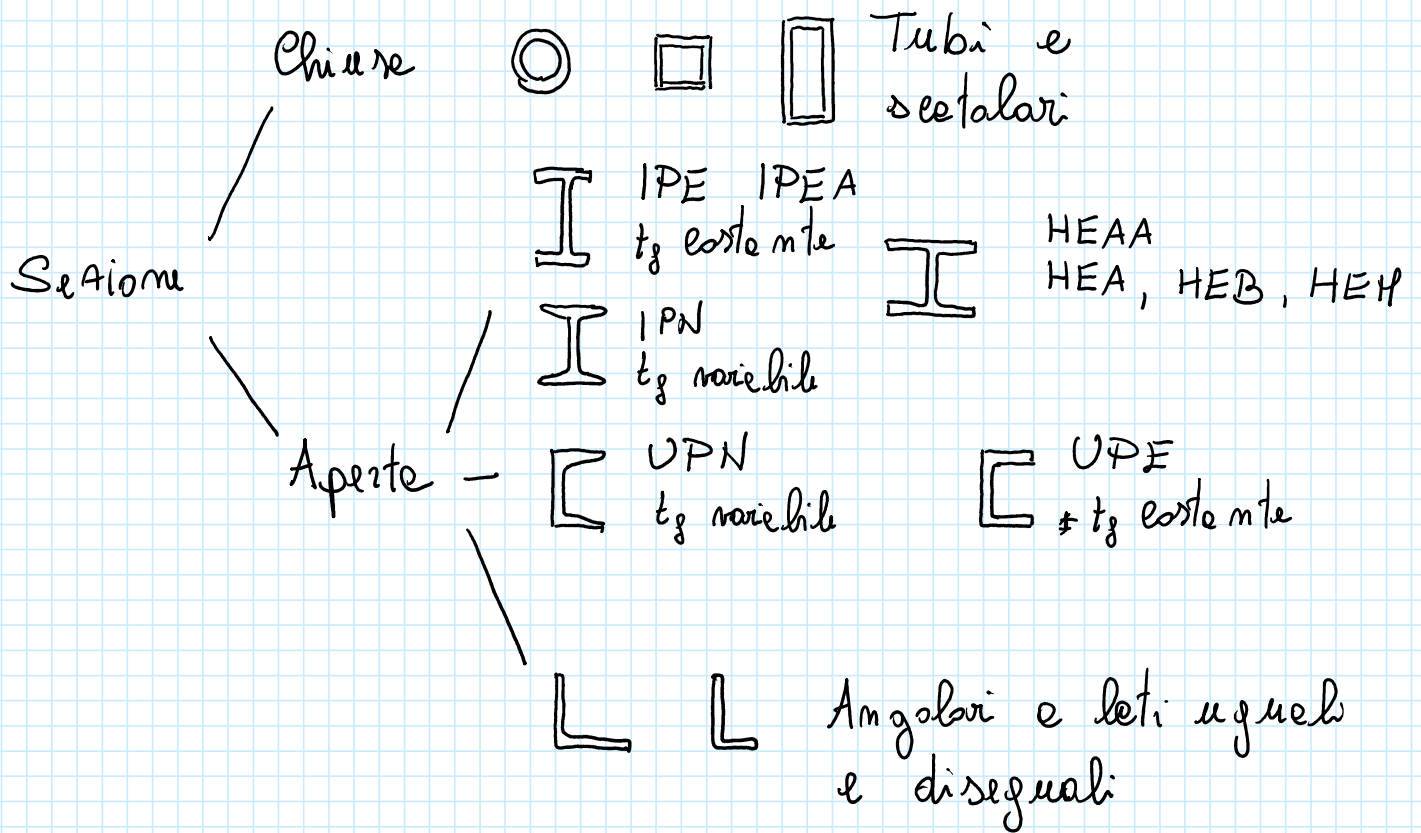 Chiuse
Tubi e
scatolari
IPE IPEA
tf costante
HEAA
HEA, HEB, HEM
Sezione
IPN
tf variabile
Aperte
UPN
tf variabile
UPE
tf costante
Angolari a lati uguali
e diseguali